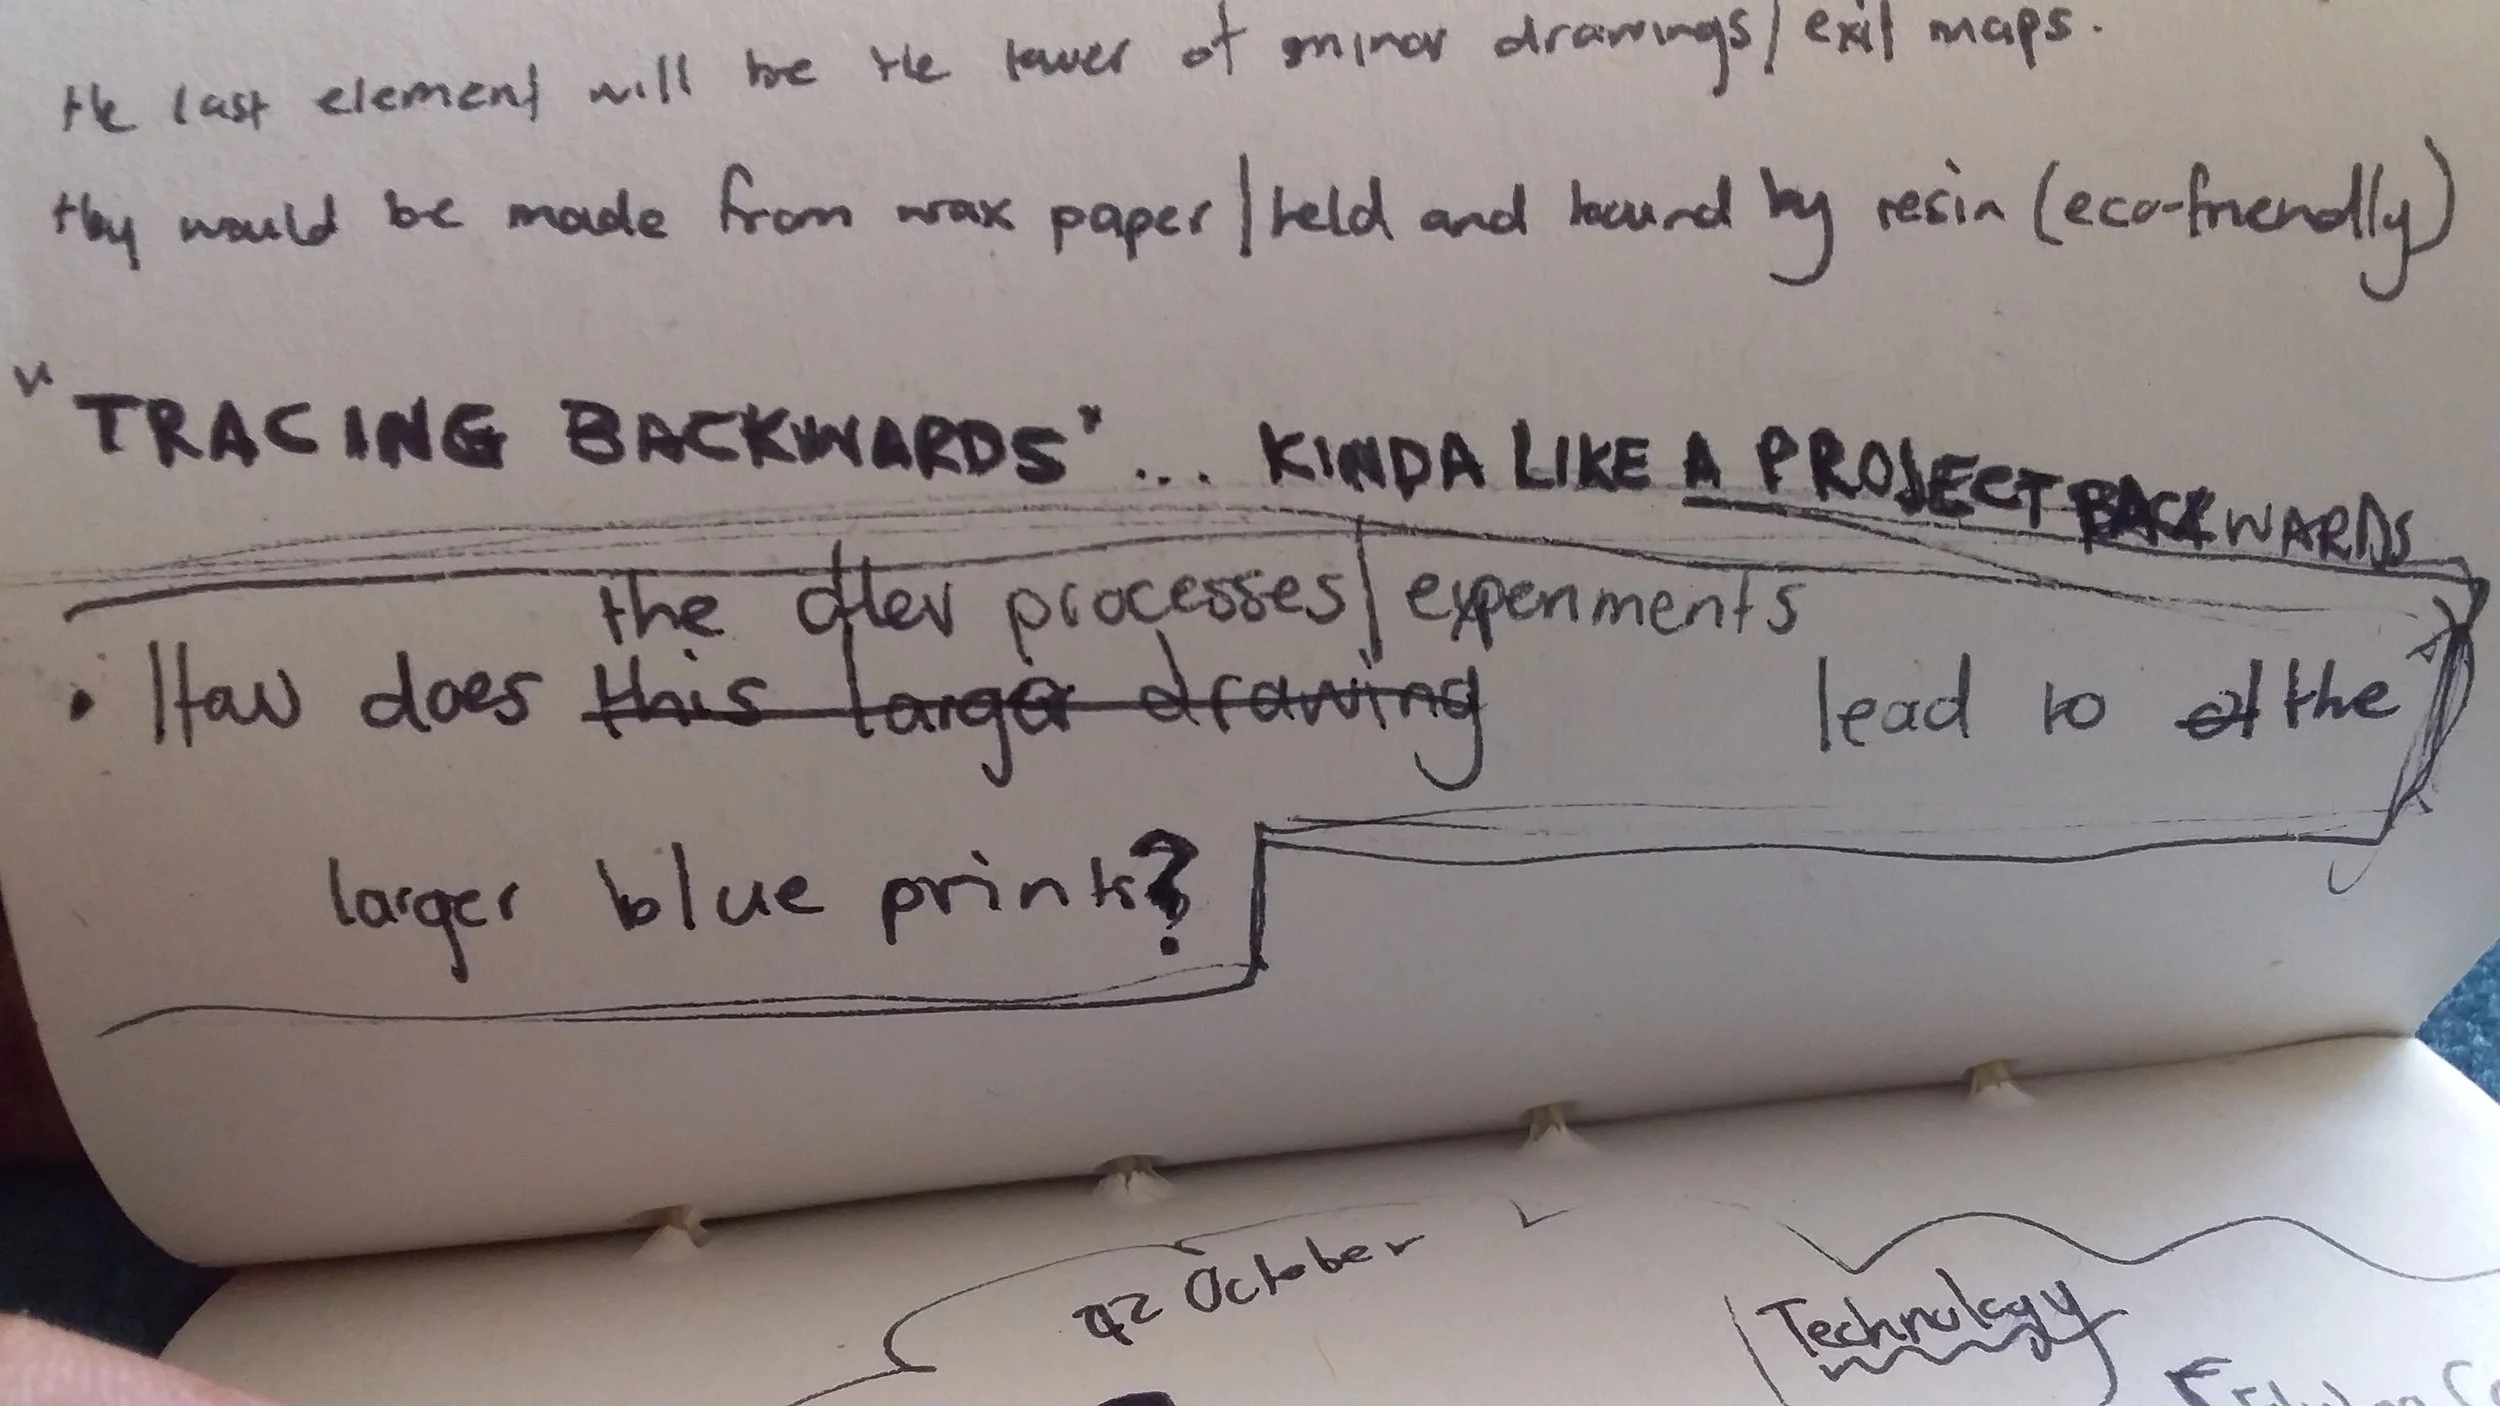 the last element will be the tower of minor drawings/exit maps.
they would be made from wax paper/held and bound by resin (eco-friendly)
"TRACING BACKWARDS"... KINDA LIKE A PROJECT BACKWARDS
the processes/experiments
• How does this larger drawing lead to the
larger blue prints?
October
Technology